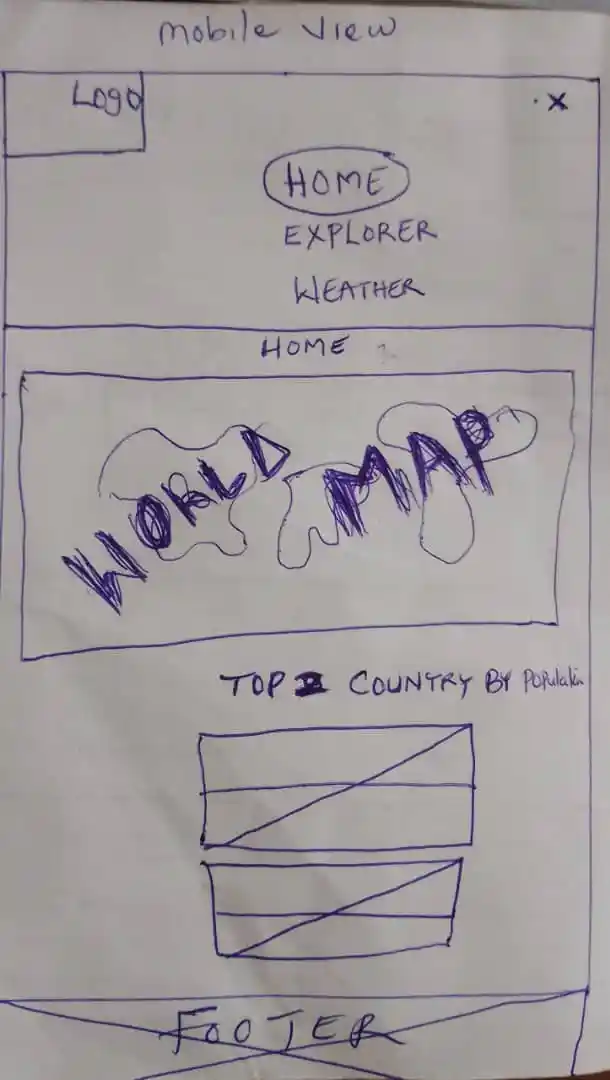 mobile view
Logo
x
HOME
EXPLORER
WEATHER
HOME
WORLD MAP
TOP 2 COUNTRY BY Population
FOOTER